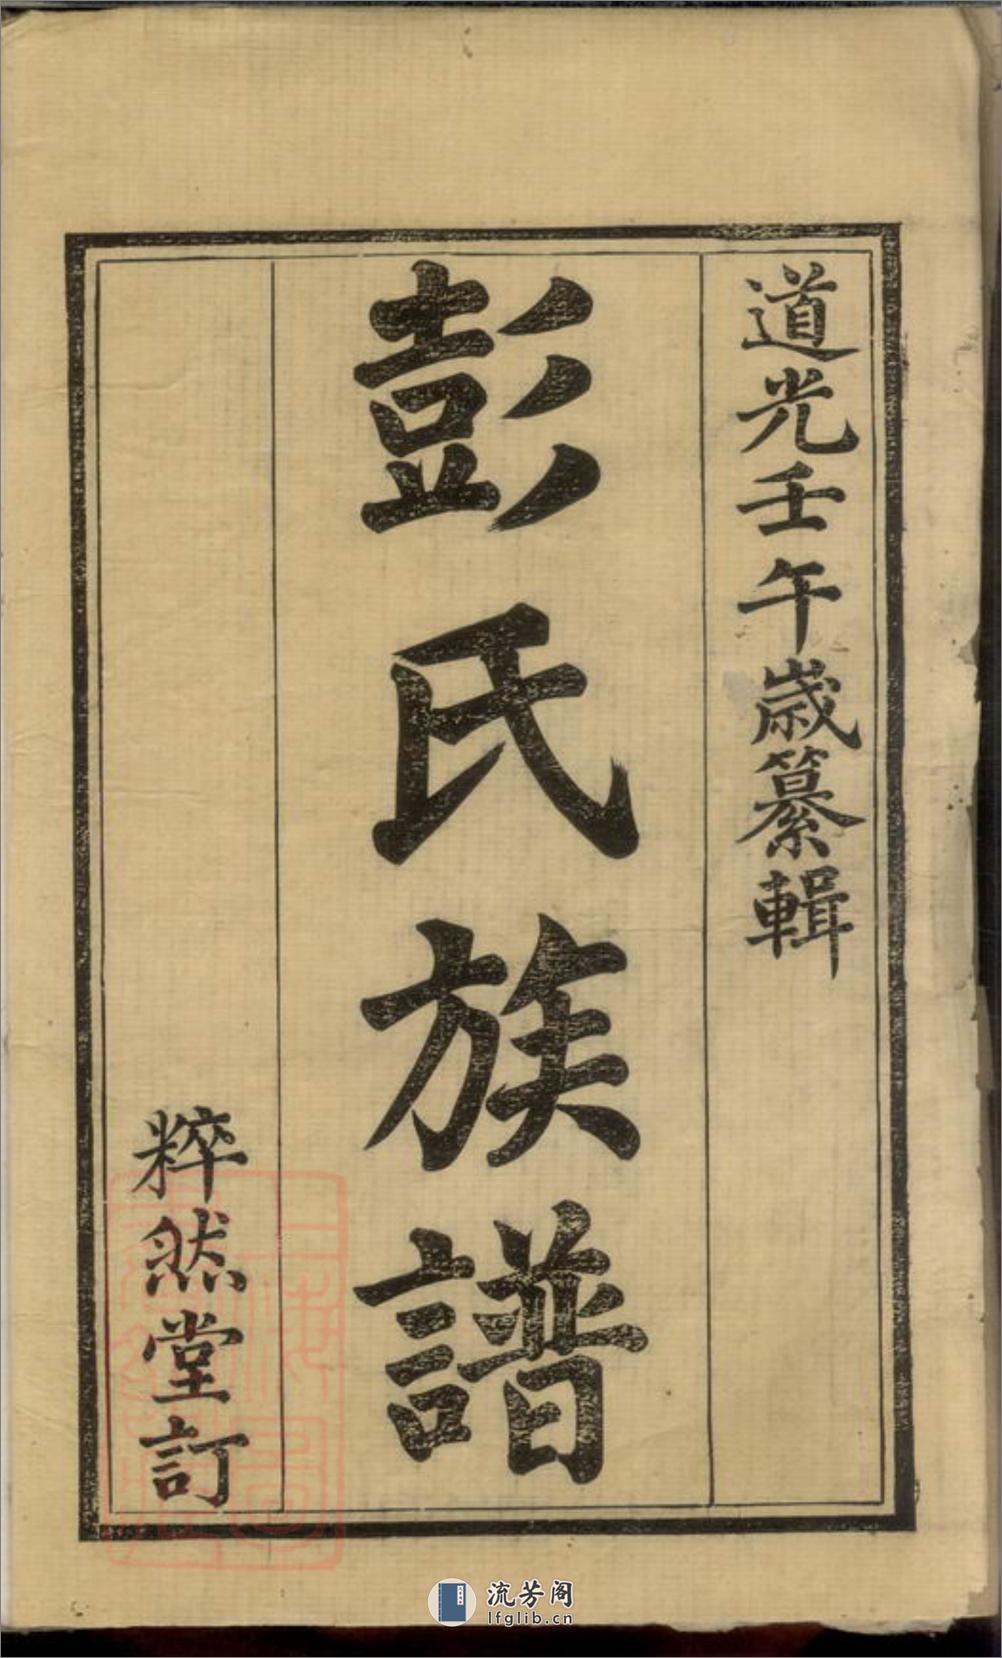 道光壬午歲纂輯
彭氏族譜
粹然堂訂
流芳阁
lfglib.cn